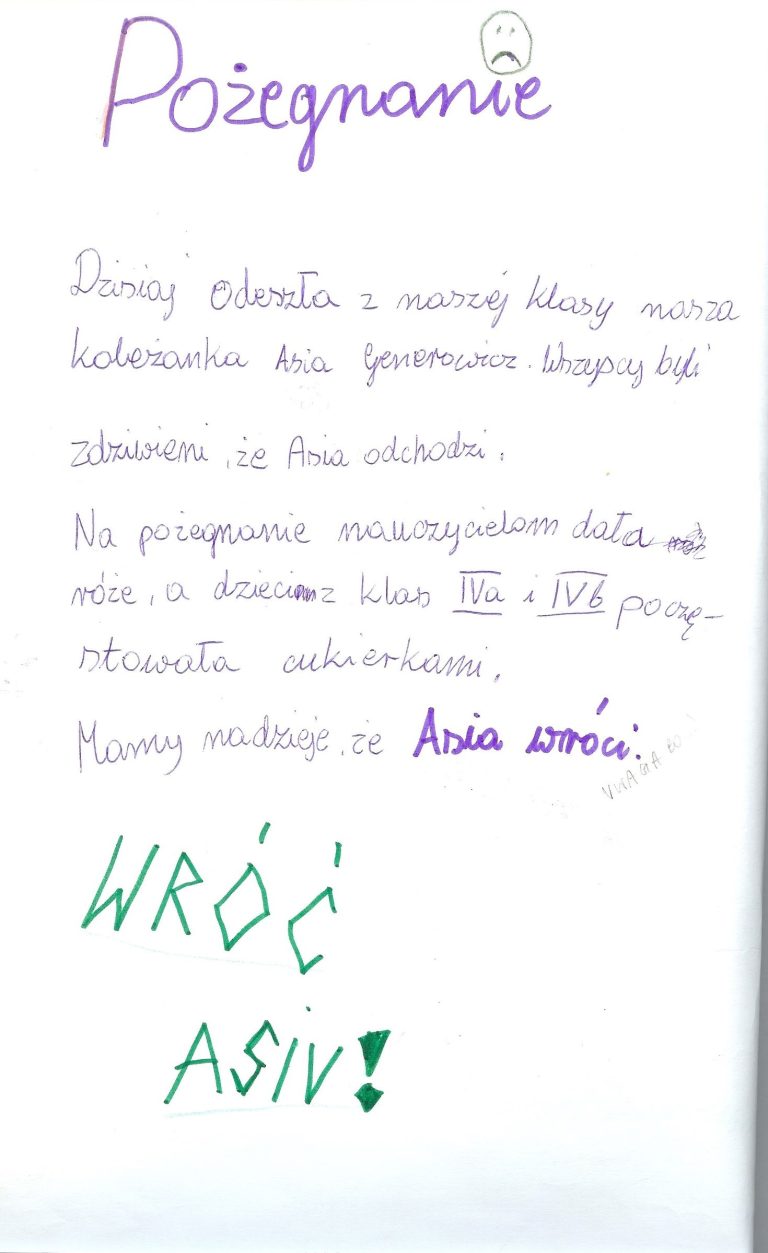 Pożegnanie
Dzisiaj odeszła z naszej klasy nasza
koleżanka Asia Generowicz. Wszyscy byli
zdziwieni, że Asia odchodzi.
Na pożegnanie nauczycielom dała
róże, a dzieciom z klas IVa i IVb poczę-
stowała cukierkami.
Mamy nadzieje, że Asia wróci.
UWAGA BO
WRÓĆ
ASIU!